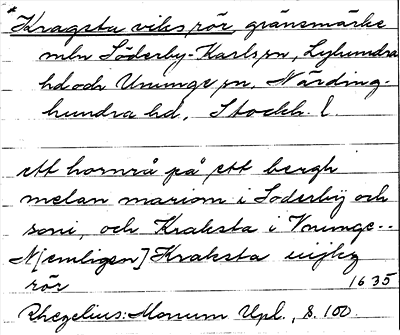 *Kragsta viks rör, gränsmärke
mln Söderby-Karls sn, Lyhundra
hd och Ununge sn, Närding-
hundra hd, Stockh. l.
ett hornrå på ett bergh
melan mariom i Söderbÿ och
soni, och Kraksta i Vnunge..
N[emligen] Kraksta uijkz
rör 1635
Rhezelius: Monum Upl., s. 100.